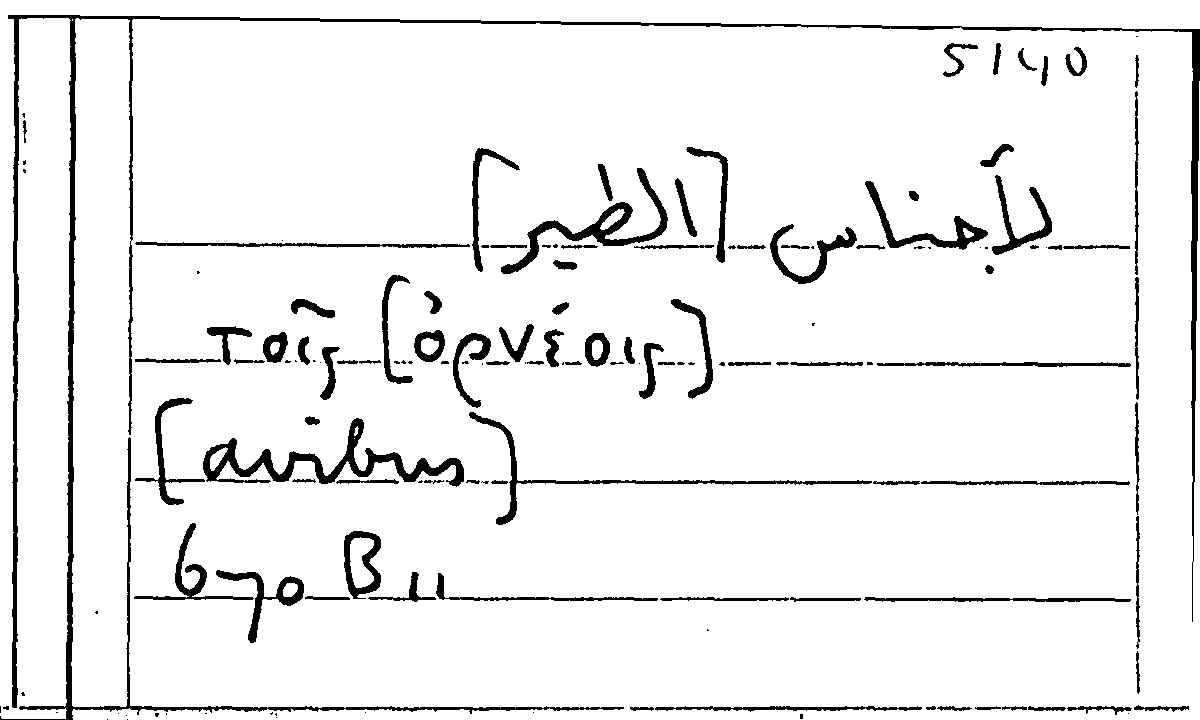 5140
لأجناس [الطير]
τοῖς [ὀρνέοις]
[avibus]
670 B 11